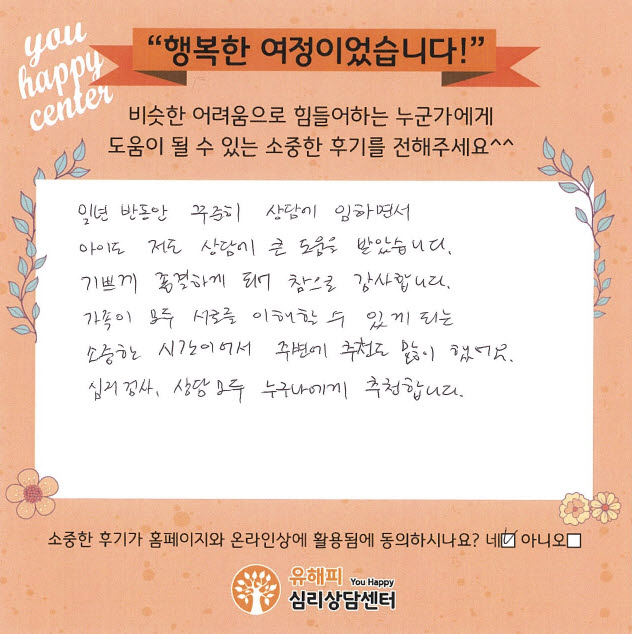 you
happy
center
“행복한 여정이었습니다!”
비슷한 어려움으로 힘들어하는 누군가에게
도움이 될 수 있는 소중한 후기를 전해주세요^^
일년 반동안 꾸준히 상담에 임하면서
아이도 저도 상담에 큰 도움을 받았습니다.
기쁘게 종결하게 되어 참으로 감사합니다.
가족이 모두 서로를 이해할 수 있게 되는
소중한 시간이어서 주변에 추천도 많이 했어요.
심리검사, 상담 모두 누구나에게 추천합니다.
소중한 후기가 홈페이지와 온라인상에 활용됨에 동의하시나요? 네☑ 아니오☐
유해피 You Happy
심리상담센터